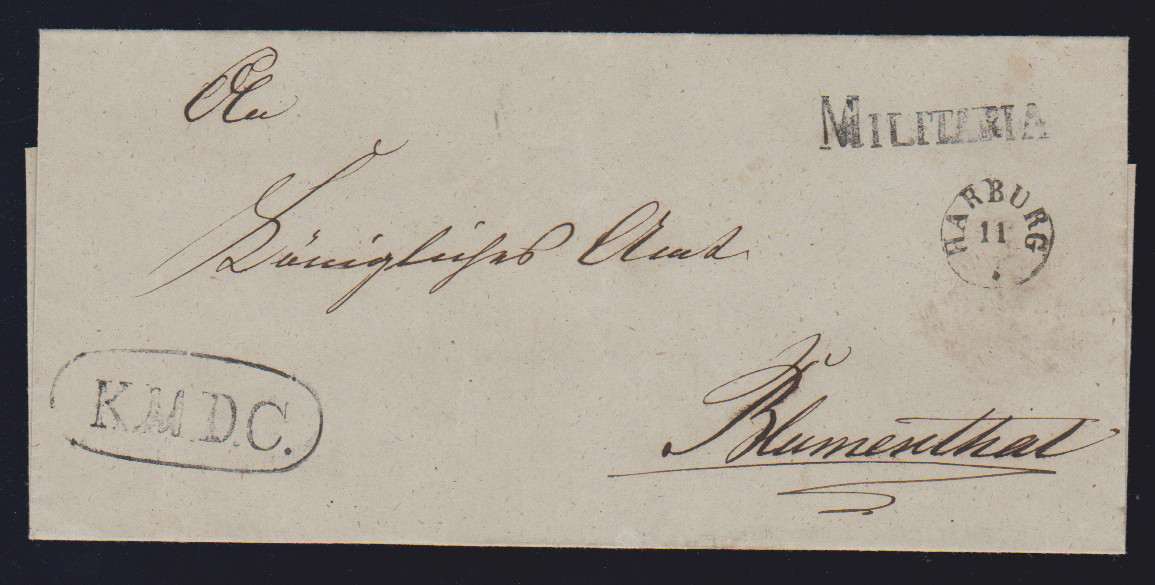 An
MILITARIA
Königliches Amt
HARBURG
11
K.M.D.C.
Blumenthal